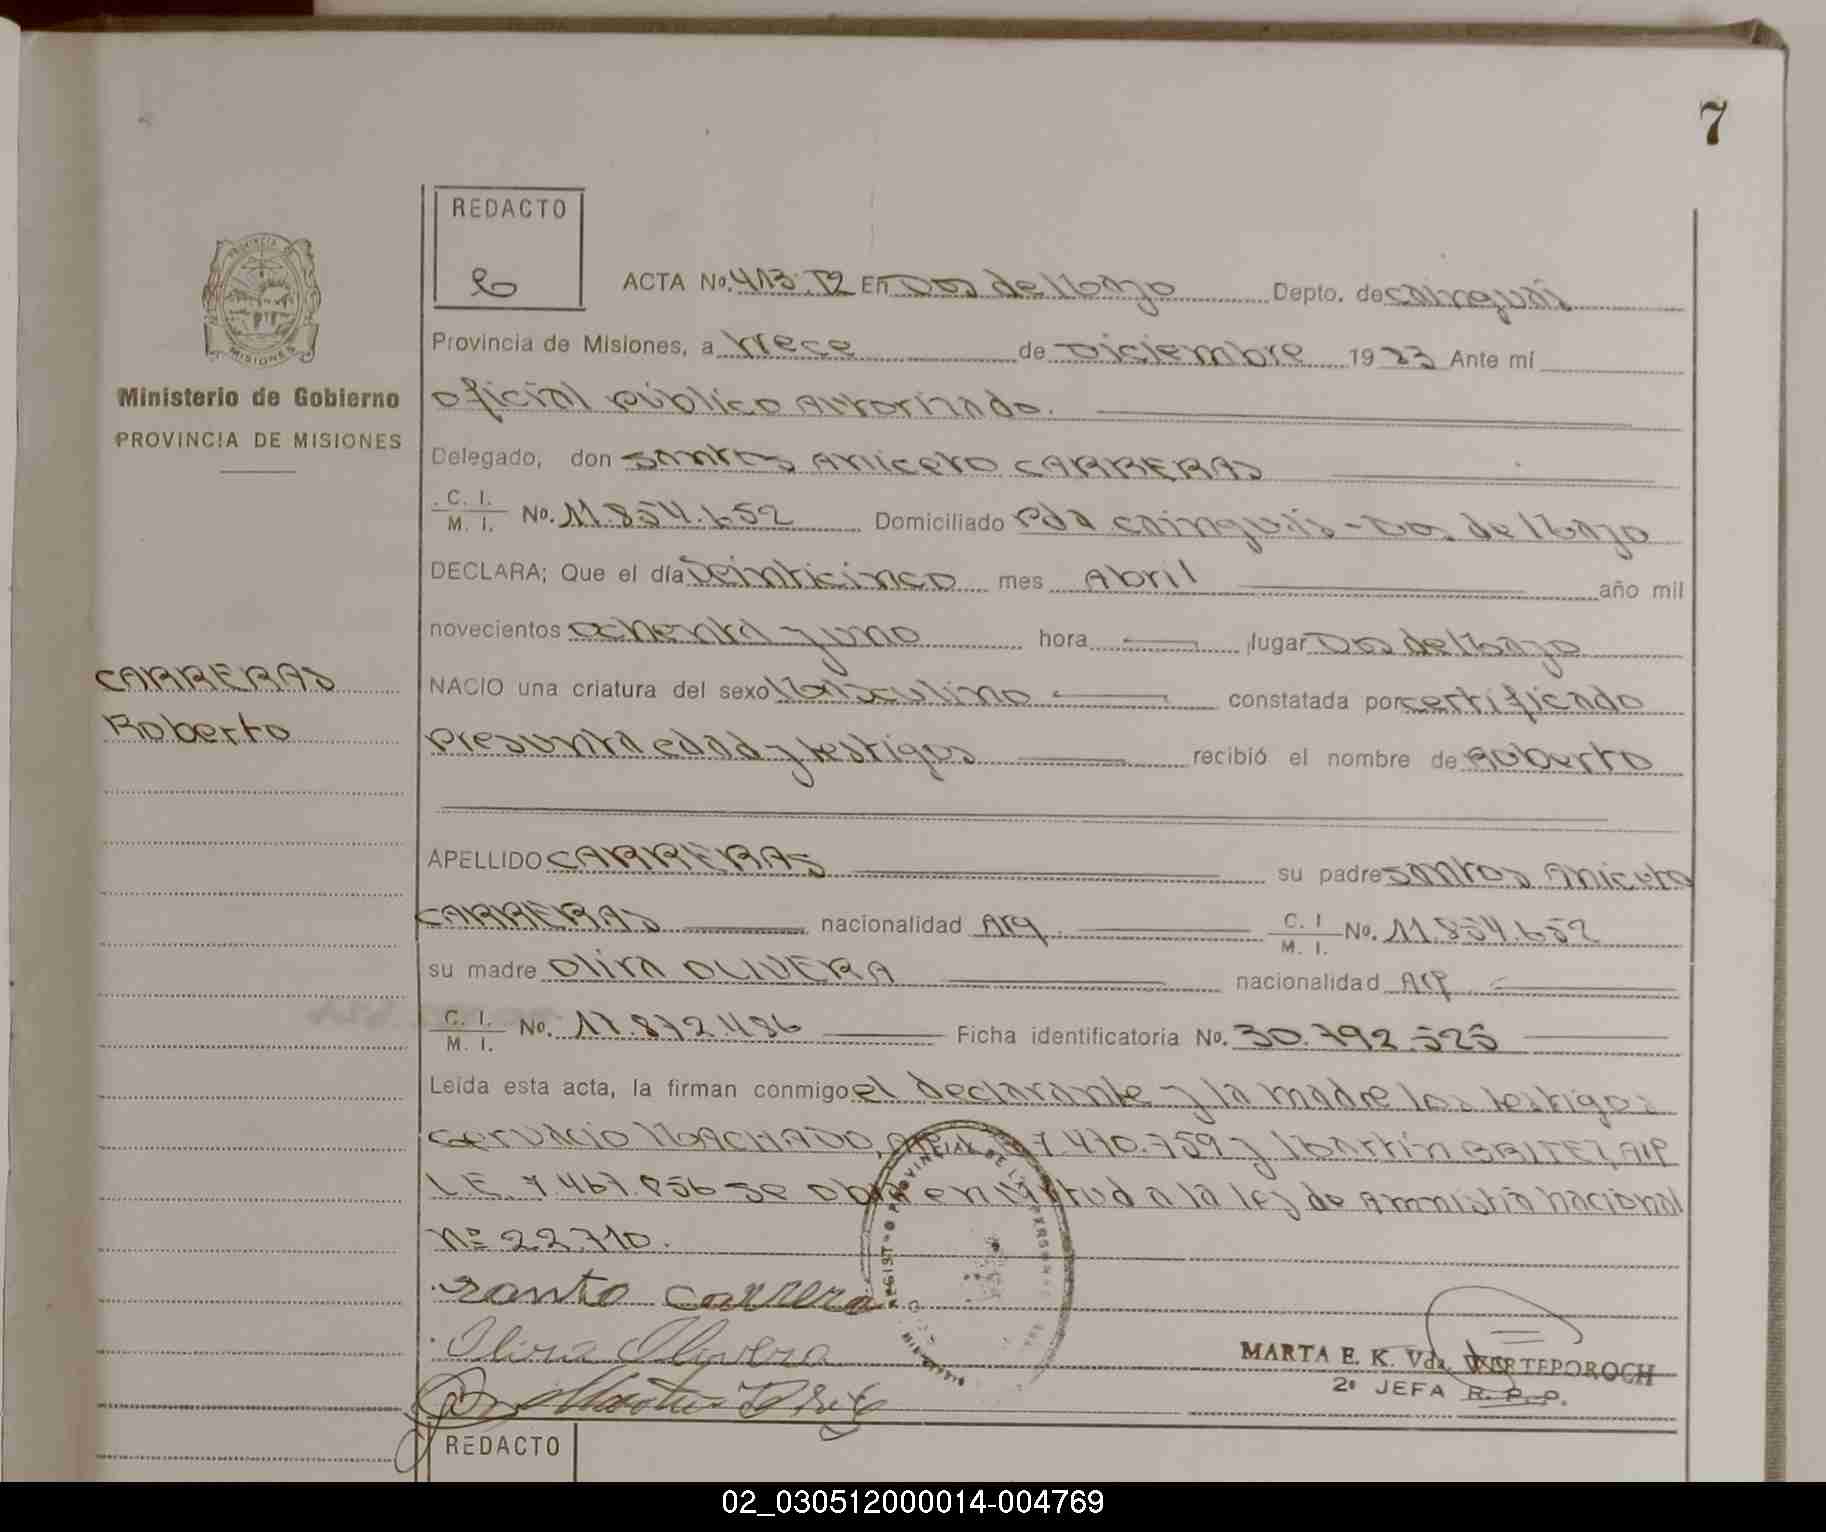 7
REDACTO
ACTA No. 413. T2 En Dos de Mayo Depto. de Cainguás
Provincia de Misiones, a trece de Diciembre 1983 Ante mí
oficial público Autorizado.
Ministerio de Gobierno
PROVINCIA DE MISIONES
Delegado, don Santos Aniceto CARRERAS
C. I.
M. I. No. 11.854.652 Domiciliado Pda Cainguás - Dos de Mayo
DECLARA; Que el día Veinticinco mes Abril año mil
novecientos ochenta y uno hora lugar Dos de Mayo
CARRERAS
Roberto
NACIO una criatura del sexo Masculino constatada por certificado
presunta edad y testigos recibió el nombre de Roberto
APELLIDO CARRERAS su padre Santos Aniceto
CARRERAS nacionalidad Arg C. I
M. I. No. 11.854.652
su madre Olira OLIVERA nacionalidad Arg
C. I.
M. I. No. 17.872.486 Ficha identificatoria No. 30.792.525
Leida esta acta, la firman conmigo el declarante y la madre los testigos
Gervacio MACHADO, 7.470.759 y Martín BRITEZ, Arg
L.E. 7.467.856 se obra en virtud a la ley de Amnistia nacional
Nº 22.710.
Santo Carrera
Olira Olivera
MARTA E. K. Vda. WERTEPOROCH
2º JEFA R. P. P.
REDACTO
02_030512000014-004769